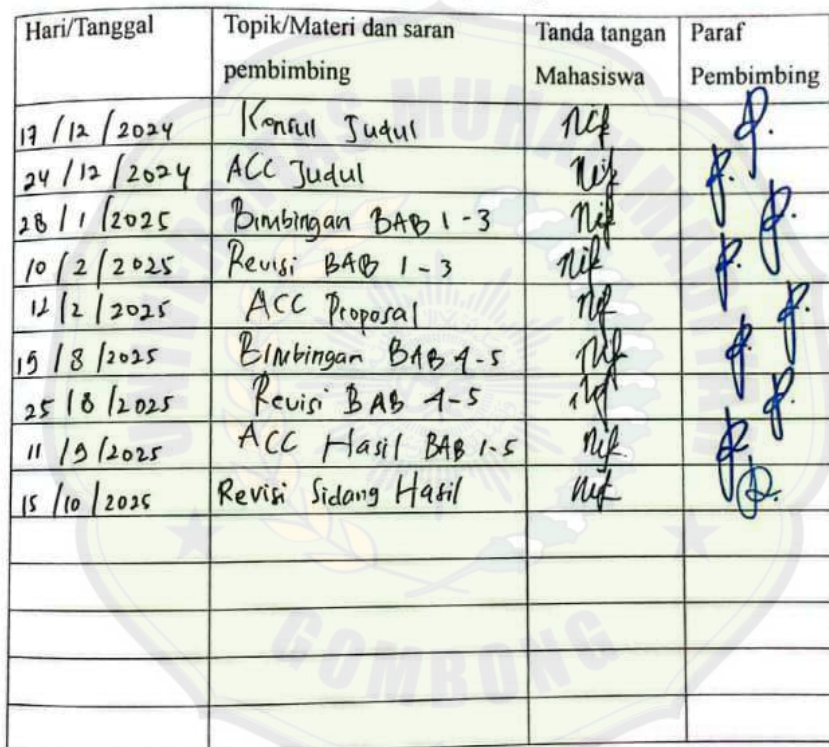 Hari/Tanggal Topik/Materi dan saran pembimbing Tanda tangan Mahasiswa Paraf Pembimbing
17/12/2024 Konsul Judul
24/12/2024 ACC Judul
28/1/2025 Bimbingan BAB 1-3
10/2/2025 Revisi BAB 1-3
12/2/2025 ACC Proposal
19/8/2025 Bimbingan BAB 4-5
25/8/2025 Revisi BAB 4-5
11/9/2025 ACC Hasil BAB 1-5
15/10/2025 Revisi Sidang Hasil
UNIVERSITAS MUHAMMADIYAH
GOMBONG